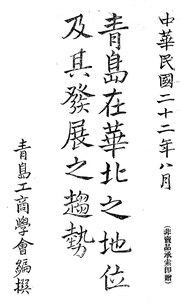 中華民國二十二年八月
(非賣品承索即贈)
青島在華北之地位
及其發展之趨勢
青島工商學會編撰